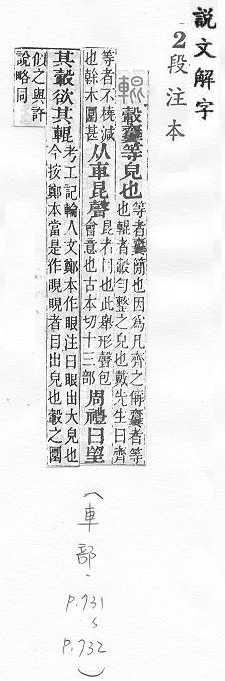 說文解字
2段注本
輥
轂齊等皃也
等者齊簡也因爲凡齊之偁齊者等
也輥者轂勻整之皃也戴先生曰齊
等者不橈減
也榦木圜甚
从車昆聲
昆者同也此舉形聲包
會意也古本切十三部
周禮曰望
其轂欲其輥
考工記輪人文鄭本作眼注曰眼出大皃也
今按鄭本當是作睍睍者目出皃也轂之圜
佀之與許
說略同
(車部、
P.731
~
P.732)